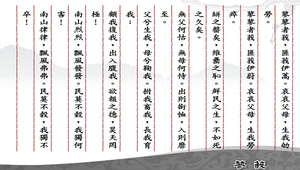 蓼蓼者莪，匪莪伊蒿。哀哀父母，生我劬
勞。
蓼蓼者莪，匪莪伊蔚。哀哀父母，生我勞
瘁。
缾之罄矣，維罍之恥。鮮民之生，不如死
之久矣。
無父何怙，無母何恃。出則銜恤，入則靡
至。
父兮生我，母兮鞠我。拊我畜我，長我育
我；
顧我復我，出入腹我。欲報之德，昊天罔
極！
南山烈烈，飄風發發。民莫不穀，我獨何
害！
南山律律，飄風弗弗。民莫不穀，我獨不
卒！
蓼莪